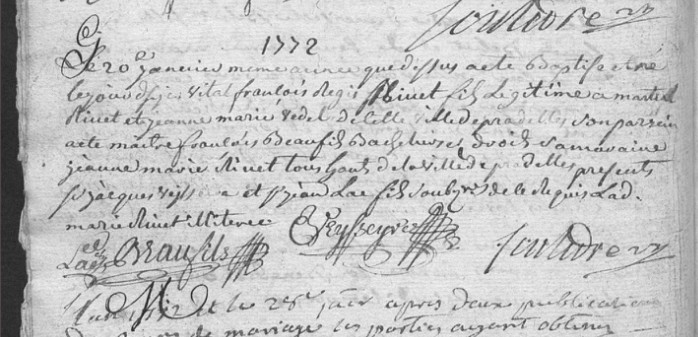 1772
Le 20e janvier meme annee que dessus a ete baptisé et né
le jour vital françois Regis Rivet fils legitime a martial
Rivet et jeanne marie vedel de cette ville de pradelles son parrain
a ete maitre françois Beaufils Bachelier droit sa maraine
jeanne marie Rivet tous habts de la ville de pradelles presents
sr jacques et sr jean soubsnes de ce requis lad
marie Rivet illiteree
Beaufils Veysseyre Soulavre
L'an 1772 et le 28e janr apres deux publications
de mariage les parties ayant obtenu